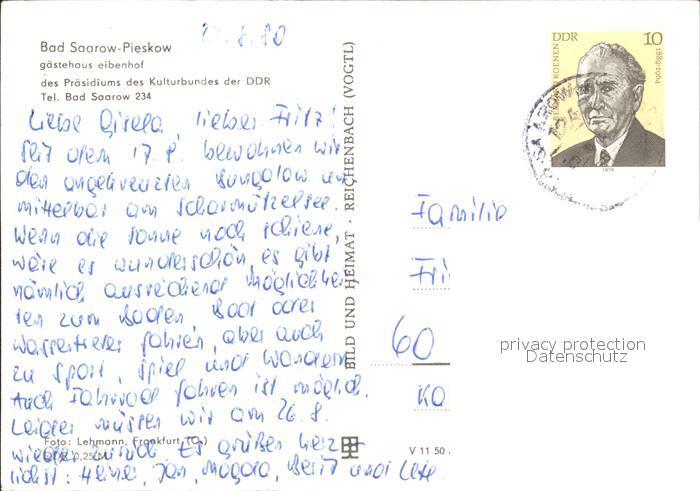 22.8.80
Bad Saarow-Pieskow
gästehaus eibenhof
des Präsidiums des Kulturbundes der DDR
Tel. Bad Saarow 234
Liebe Gisela, lieber Fritz!
Seit dem 17.8. bewohnen wir
den angekreuzten Bungalow un
mittelbar am Scharmützelsee.
Wenn die Sonne noch schiene,
wäre es wunderschön, es gibt
nämlich ausreichend Möglichkei
ten zum Baden, Boot oder
Wassertreter fahren, aber auch
zu Sport, Spiel und Wandern.
Auch Fahrrad fahren ist möglich.
Leider müssen wir am 26.8.
wieder zurück. Es grüßen herz-
lichst: Heiner, Jan, Berit und
Foto: Lehmann, Frankfurt (O.)
0,25 M
BILD UND HEIMAT · REICHENBACH (VOGTL)
V 11 50
DDR 10
KOENEN
1886-1964
1976
SAAROW
Familie
Fri
60
privacy protection
Datenschutz